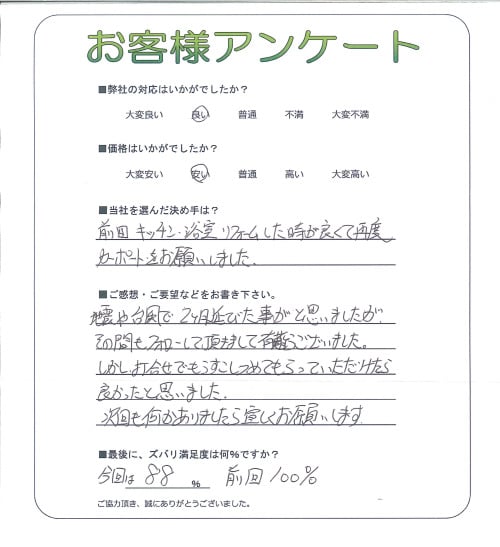 お客様アンケート
■弊社の対応はいかがでしたか？
大変良い　良い　普通　不満　大変不満
■価格はいかがでしたか？
大変安い　安い　普通　高い　大変高い
■当社を選んだ決め手は？
前回キッチン・浴室リフォームした時が良くて再度
カーポートをお願いしました。
■ご感想・ご要望などをお書き下さい。
地震や台風で2ヶ月延びた事がと思いましたが、
その間もフォローして頂きまして有難うございました。
しかし打合せでもう少しつめてもらっていただけたら
良かったと思いました。
次回も何かありましたら宜しくお願いします
■最後に、ズバリ満足度は何%ですか？
今回は 88 % 前回 100%
ご協力頂き、誠にありがとうございました。